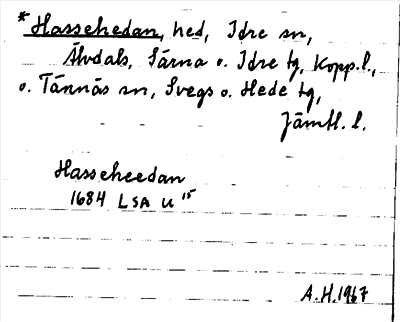 * Hassehedan, hed, Idre sn,
Älvdals, Särna o. Idre tg, Kopp.l.,
o. Tännäs sn, Svegs o. Hede tg,
Jämtl. l.
Hasseheedan
1684 LSA U 15
A.H. 1967